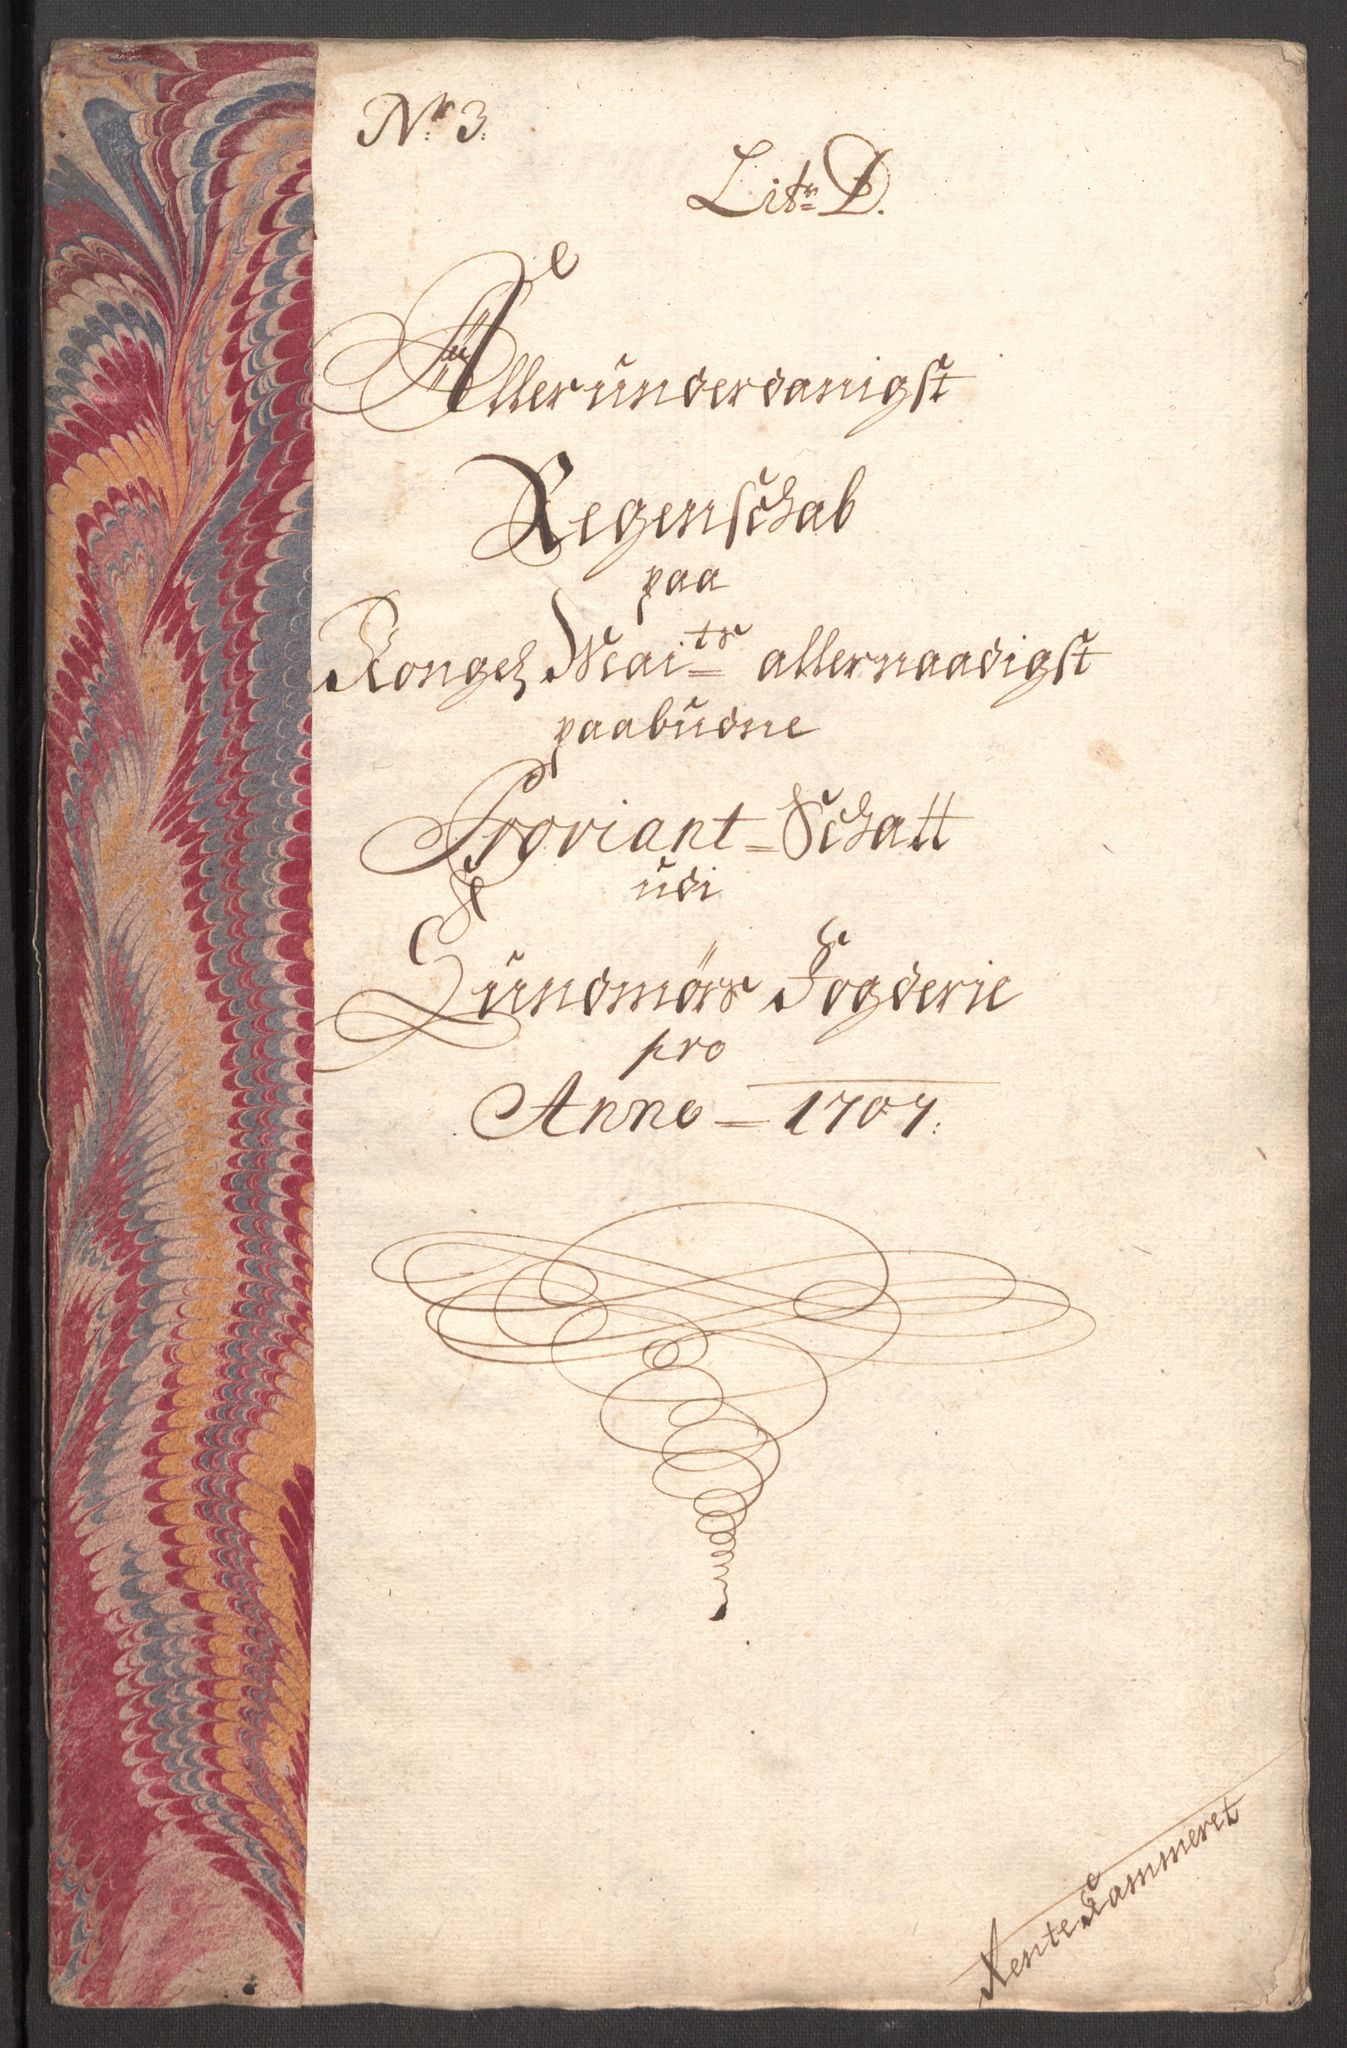 Nr. 3.
Litr. D.
Allerunderdanigst
Regenschab
paa
Kongel Maits allernaadigst
paabudne
Proviant-Schatt
udi
Sundmörs Fogderie
pro
Anno - 1707.
Rente Cammeret